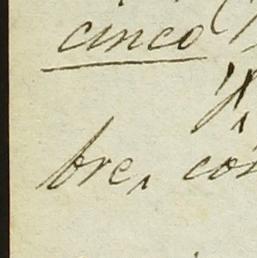 cinco (
bre, con